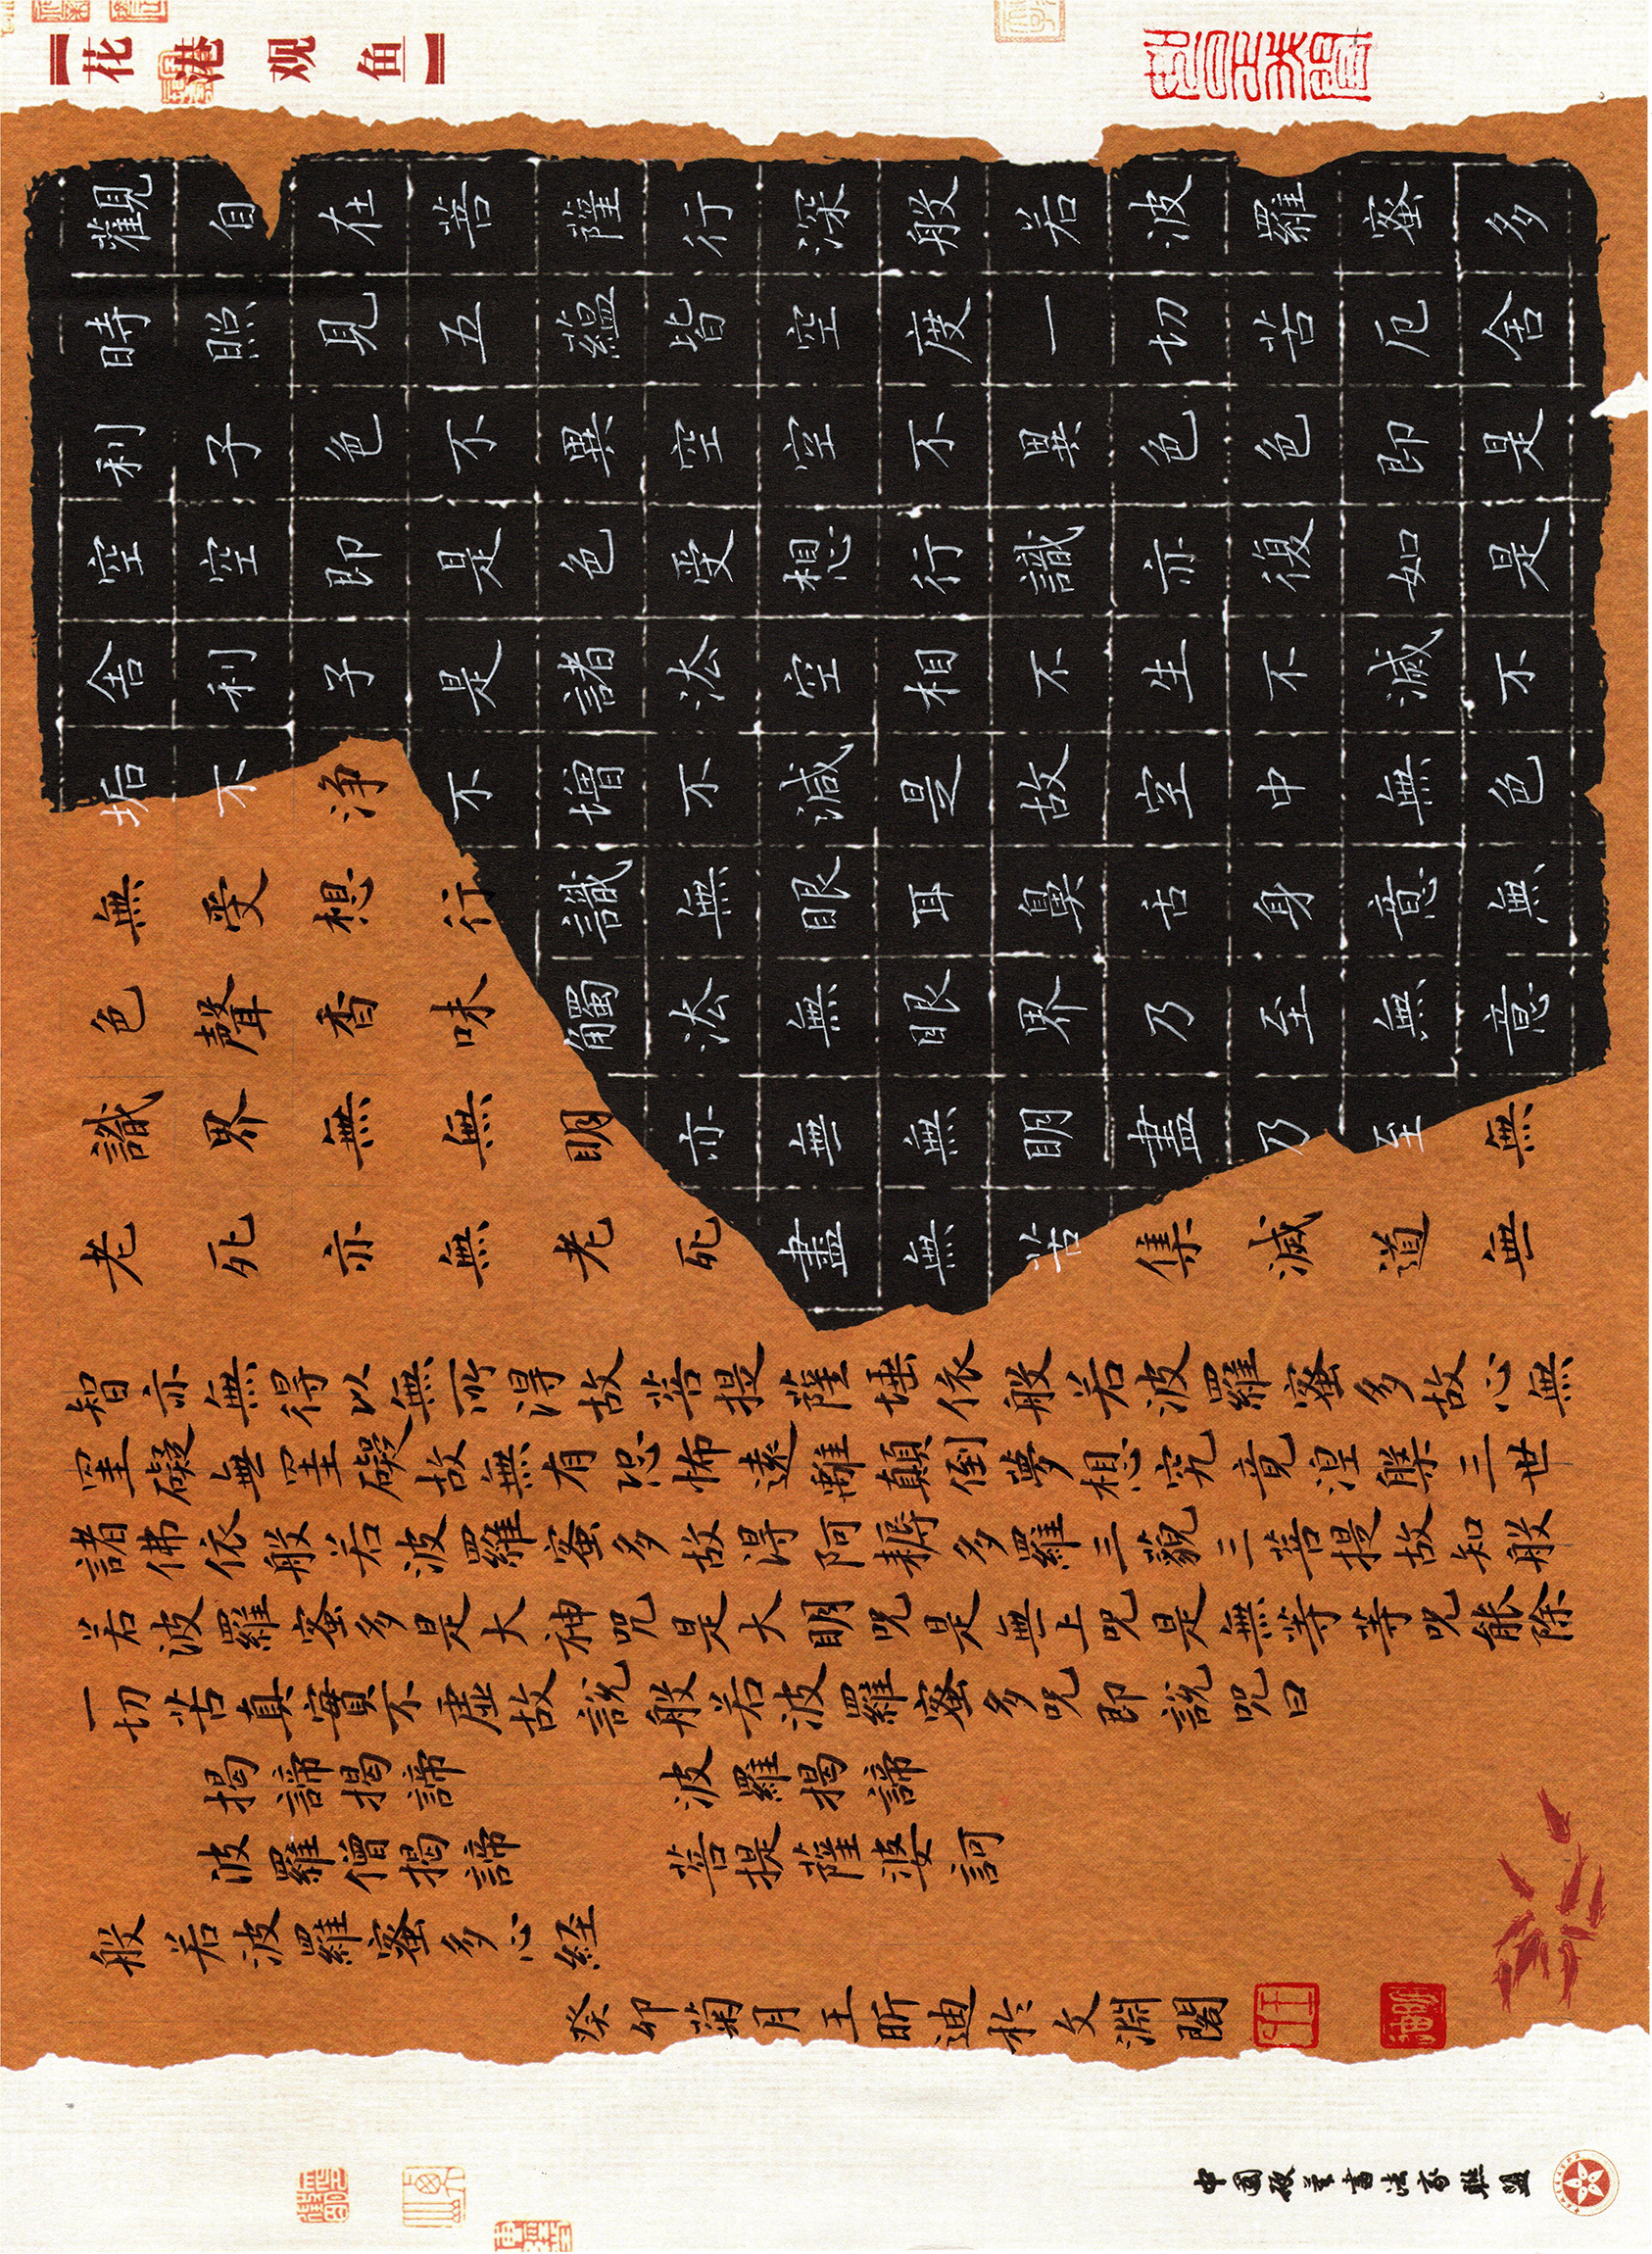 【花港观鱼】
觀自在菩薩行深般若波羅蜜多
時照見五蘊皆空度一切苦厄舍
利子色不異空空不異色色即是
空空即是色受想行識亦復如是
舍利子是諸法空相不生不滅不
垢不净不增不減是故空中無色
無受想行識無眼耳鼻舌身意無
色聲香味觸法無眼界乃至無意
識界無無明亦無無明盡乃至無
老死亦無老死盡無苦集滅道無
智亦無得以無所得故菩提薩埵依般若波羅蜜多故心無
罣礙無罣礙故無有恐怖遠離顛倒夢想究竟涅槃三世
諸佛依般若波羅蜜多故得阿耨多羅三藐三菩提故知般
若波羅蜜多是大神咒是大明咒是無上咒是無等等咒能除
一切苦真實不虛故說般若波羅蜜多咒即說咒曰
揭諦揭諦 波羅揭諦
波羅僧揭諦 菩提薩婆訶
般若波羅蜜多心経
癸卯菊月王昕迪於文淵閣
中國硬筆書法家聯盟